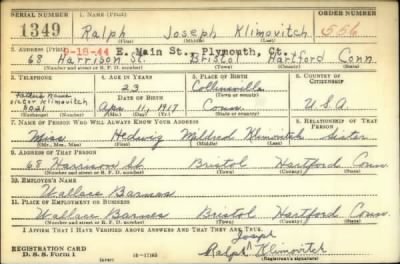 SERIAL NUMBER 1. NAME (Print) ORDER NUMBER
1349 Ralph Joseph Klimovitch 556
(First) (Middle) (Last)
2. ADDRESS (Print) 9-18-44 E. Main St. Plymouth, Ct.
68 Harrison St. Bristol Hartford Conn
(Number and street or R. F. D. number) (Town) (County) (State)
3. TELEPHONE 4. AGE IN YEARS 5. PLACE OF BIRTH 6. COUNTRY OF CITIZENSHIP
23 Collinsville
(Town or county)
Klimovitch DATE OF BIRTH
Apr. 11, 1917 Conn. U S A
(Exchange) (Number) (Mo.) (Day) (Yr.) (State or country)
7. NAME OF PERSON WHO WILL ALWAYS KNOW YOUR ADDRESS 8. RELATIONSHIP OF THAT PERSON
Miss Hedwig Mildred Klimovitch Sister
(Mr., Mrs., Miss) (First) (Middle) (Last)
9. ADDRESS OF THAT PERSON
68 Harrison St Bristol Hartford Conn
(Number and street or R. F. D. number) (Town) (County) (State)
10. EMPLOYER'S NAME
Wallace Barnes
11. PLACE OF EMPLOYMENT OR BUSINESS
Wallace Barnes Bristol Hartford Conn
(Number and street or R. F. D. number) (Town) (County) (State)
I AFFIRM THAT I HAVE VERIFIED ABOVE ANSWERS AND THAT THEY ARE TRUE.
Joseph
REGISTRATION CARD Ralph ^ Klimovitch
D. S. S. Form 1 (over) 16-17105 (Registrant's signature)